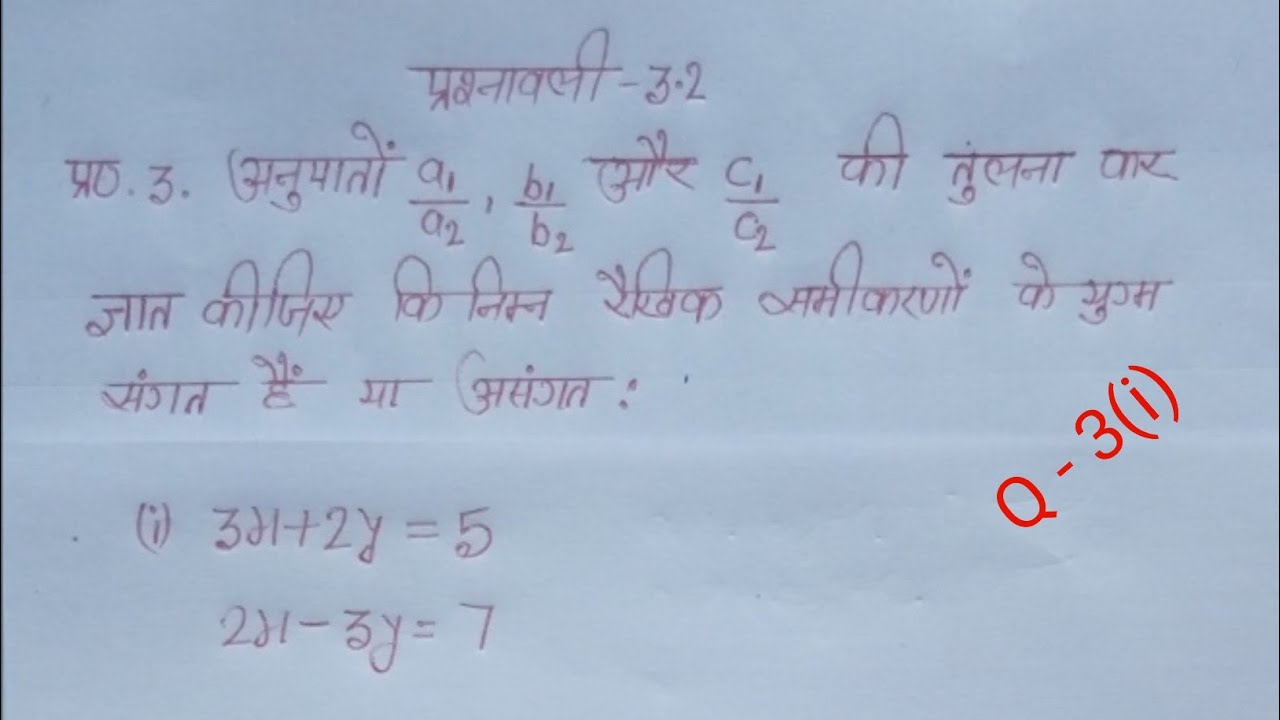 प्रश्नावली - 3.2
प्र०. 3. अनुपातों a₁/a₂, b₁/b₂ और c₁/c₂ की तुलना कर
ज्ञात कीजिए कि निम्न रैखिक समीकरणों के युग्म
संगत हैं या असंगत :
Q - 3(i)
(i) 3x+2y = 5
2x - 3y = 7